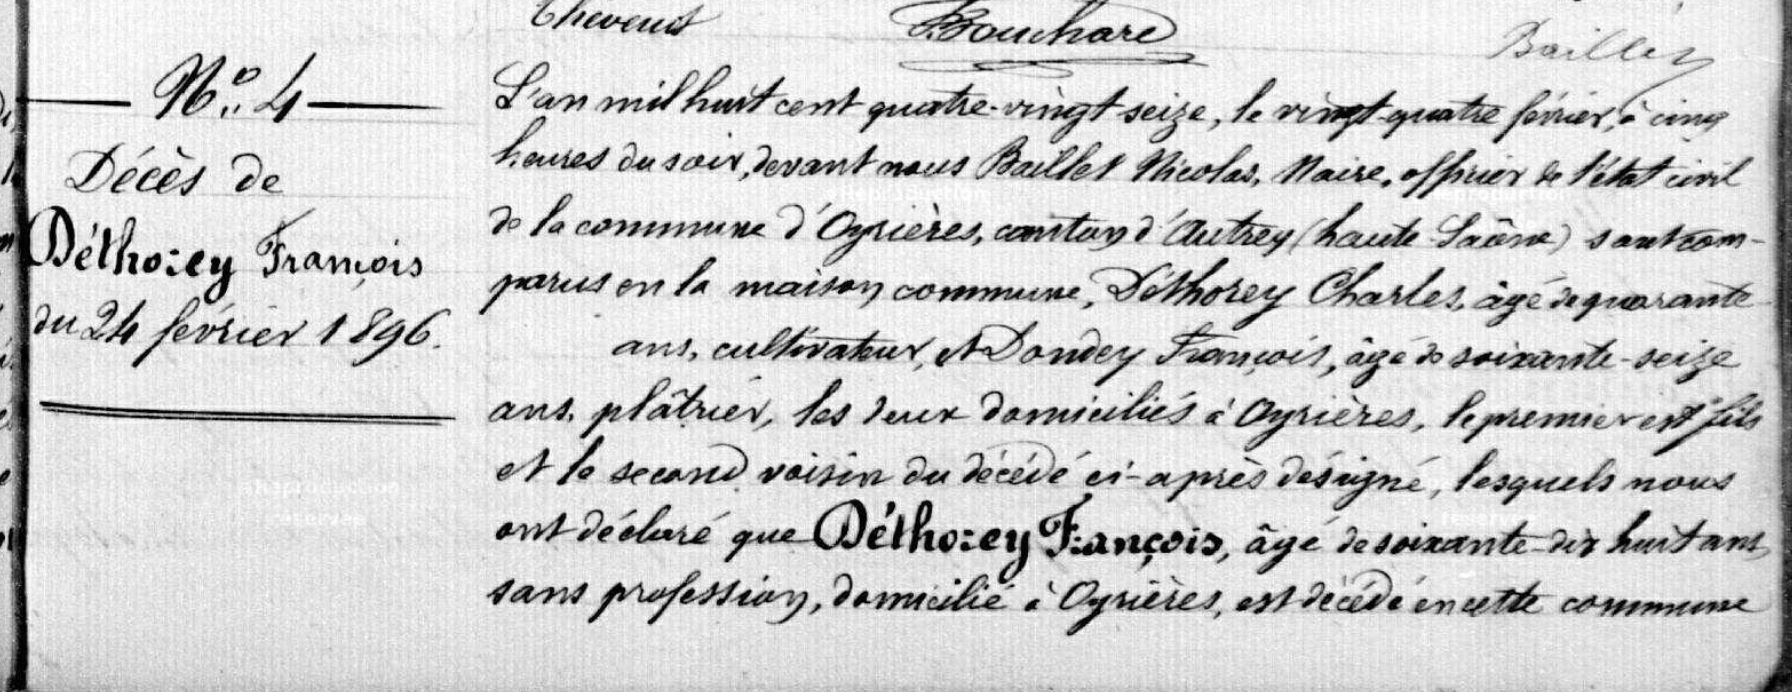 Thevenet Bouchare Baille
N° 4
Décès de
Déthorey François
du 24 février 1896.
L'an mil huit cent quatre-vingt seize, le vingt-quatre février, à cinq
heures du soir, devant nous Baillet Nicolas, Maire, officier de l'état civil
de la commune d'Oyrières, canton d'Autrey (haute Saône) sont com-
parus en la maison commune, Déthorey Charles, âgé de quarante
ans, cultivateur, et Dondey François, âgé de soixante-seize
ans, plâtrier, les deux domiciliés à Oyrières, le premier est fils
et le second voisin du décédé ci-après désigné, lesquels nous
ont déclaré que Déthorey François, âgé de soixante-dix huit ans,
sans profession, domicilié à Oyrières, est décédé en cette commune